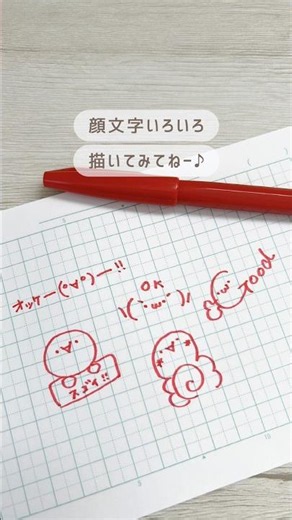 顔文字いろいろ
描いてみてねー♪
オッケー(°∀°)ー!!
OK
\(˘ω˘)/
Good
・∀・
スゴイ!!
*・∀・*